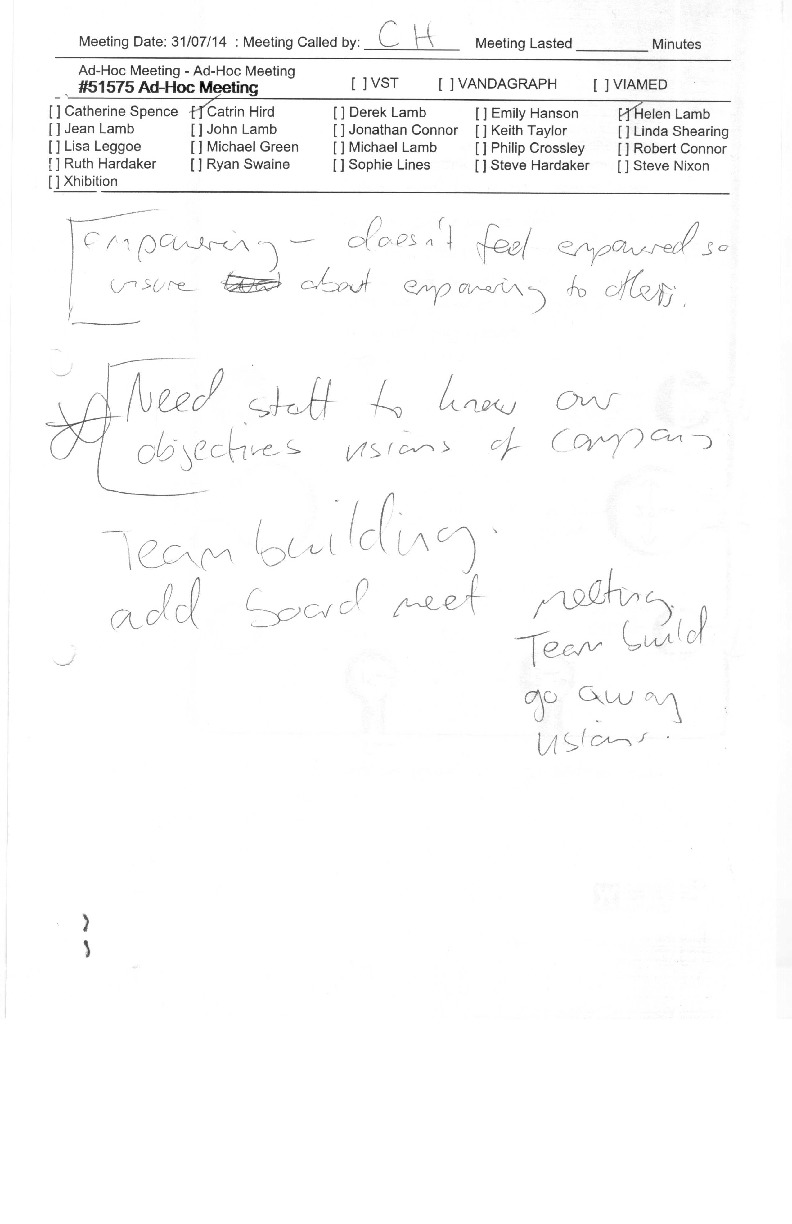 Meeting Date: 31/07/14 : Meeting Called by: CH Meeting Lasted ________ Minutes
Ad-Hoc Meeting - Ad-Hoc Meeting
#51575 Ad-Hoc Meeting [ ] VST [ ] VANDAGRAPH [ ] VIAMED
[ ] Catherine Spence [/] Catrin Hird [ ] Derek Lamb [ ] Emily Hanson [/] Helen Lamb
[ ] Jean Lamb [ ] John Lamb [ ] Jonathan Connor [ ] Keith Taylor [ ] Linda Shearing
[ ] Lisa Leggoe [ ] Michael Green [ ] Michael Lamb [ ] Philip Crossley [ ] Robert Connor
[ ] Ruth Hardaker [ ] Ryan Swaine [ ] Sophie Lines [ ] Steve Hardaker [ ] Steve Nixon
[ ] Xhibition
empowering – doesn't feel empowered so
unsure about empowering to others.
Need staff to know our
objectives visions of company
Team building.
add board meet meeting.
Team build
go away
visions.